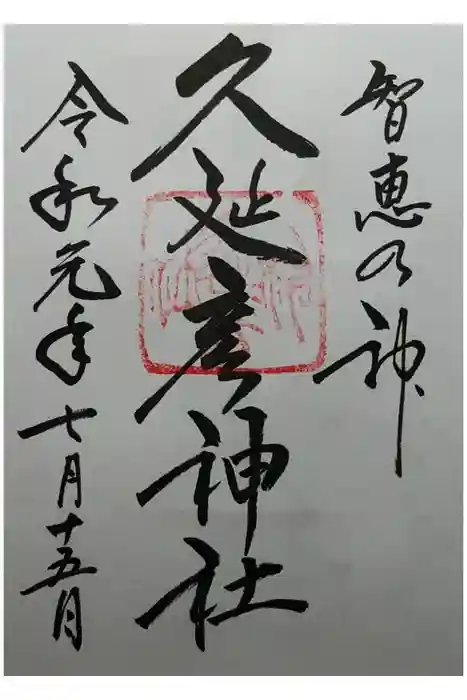 智恵の神
久延彦神社
令和元年七月十五日